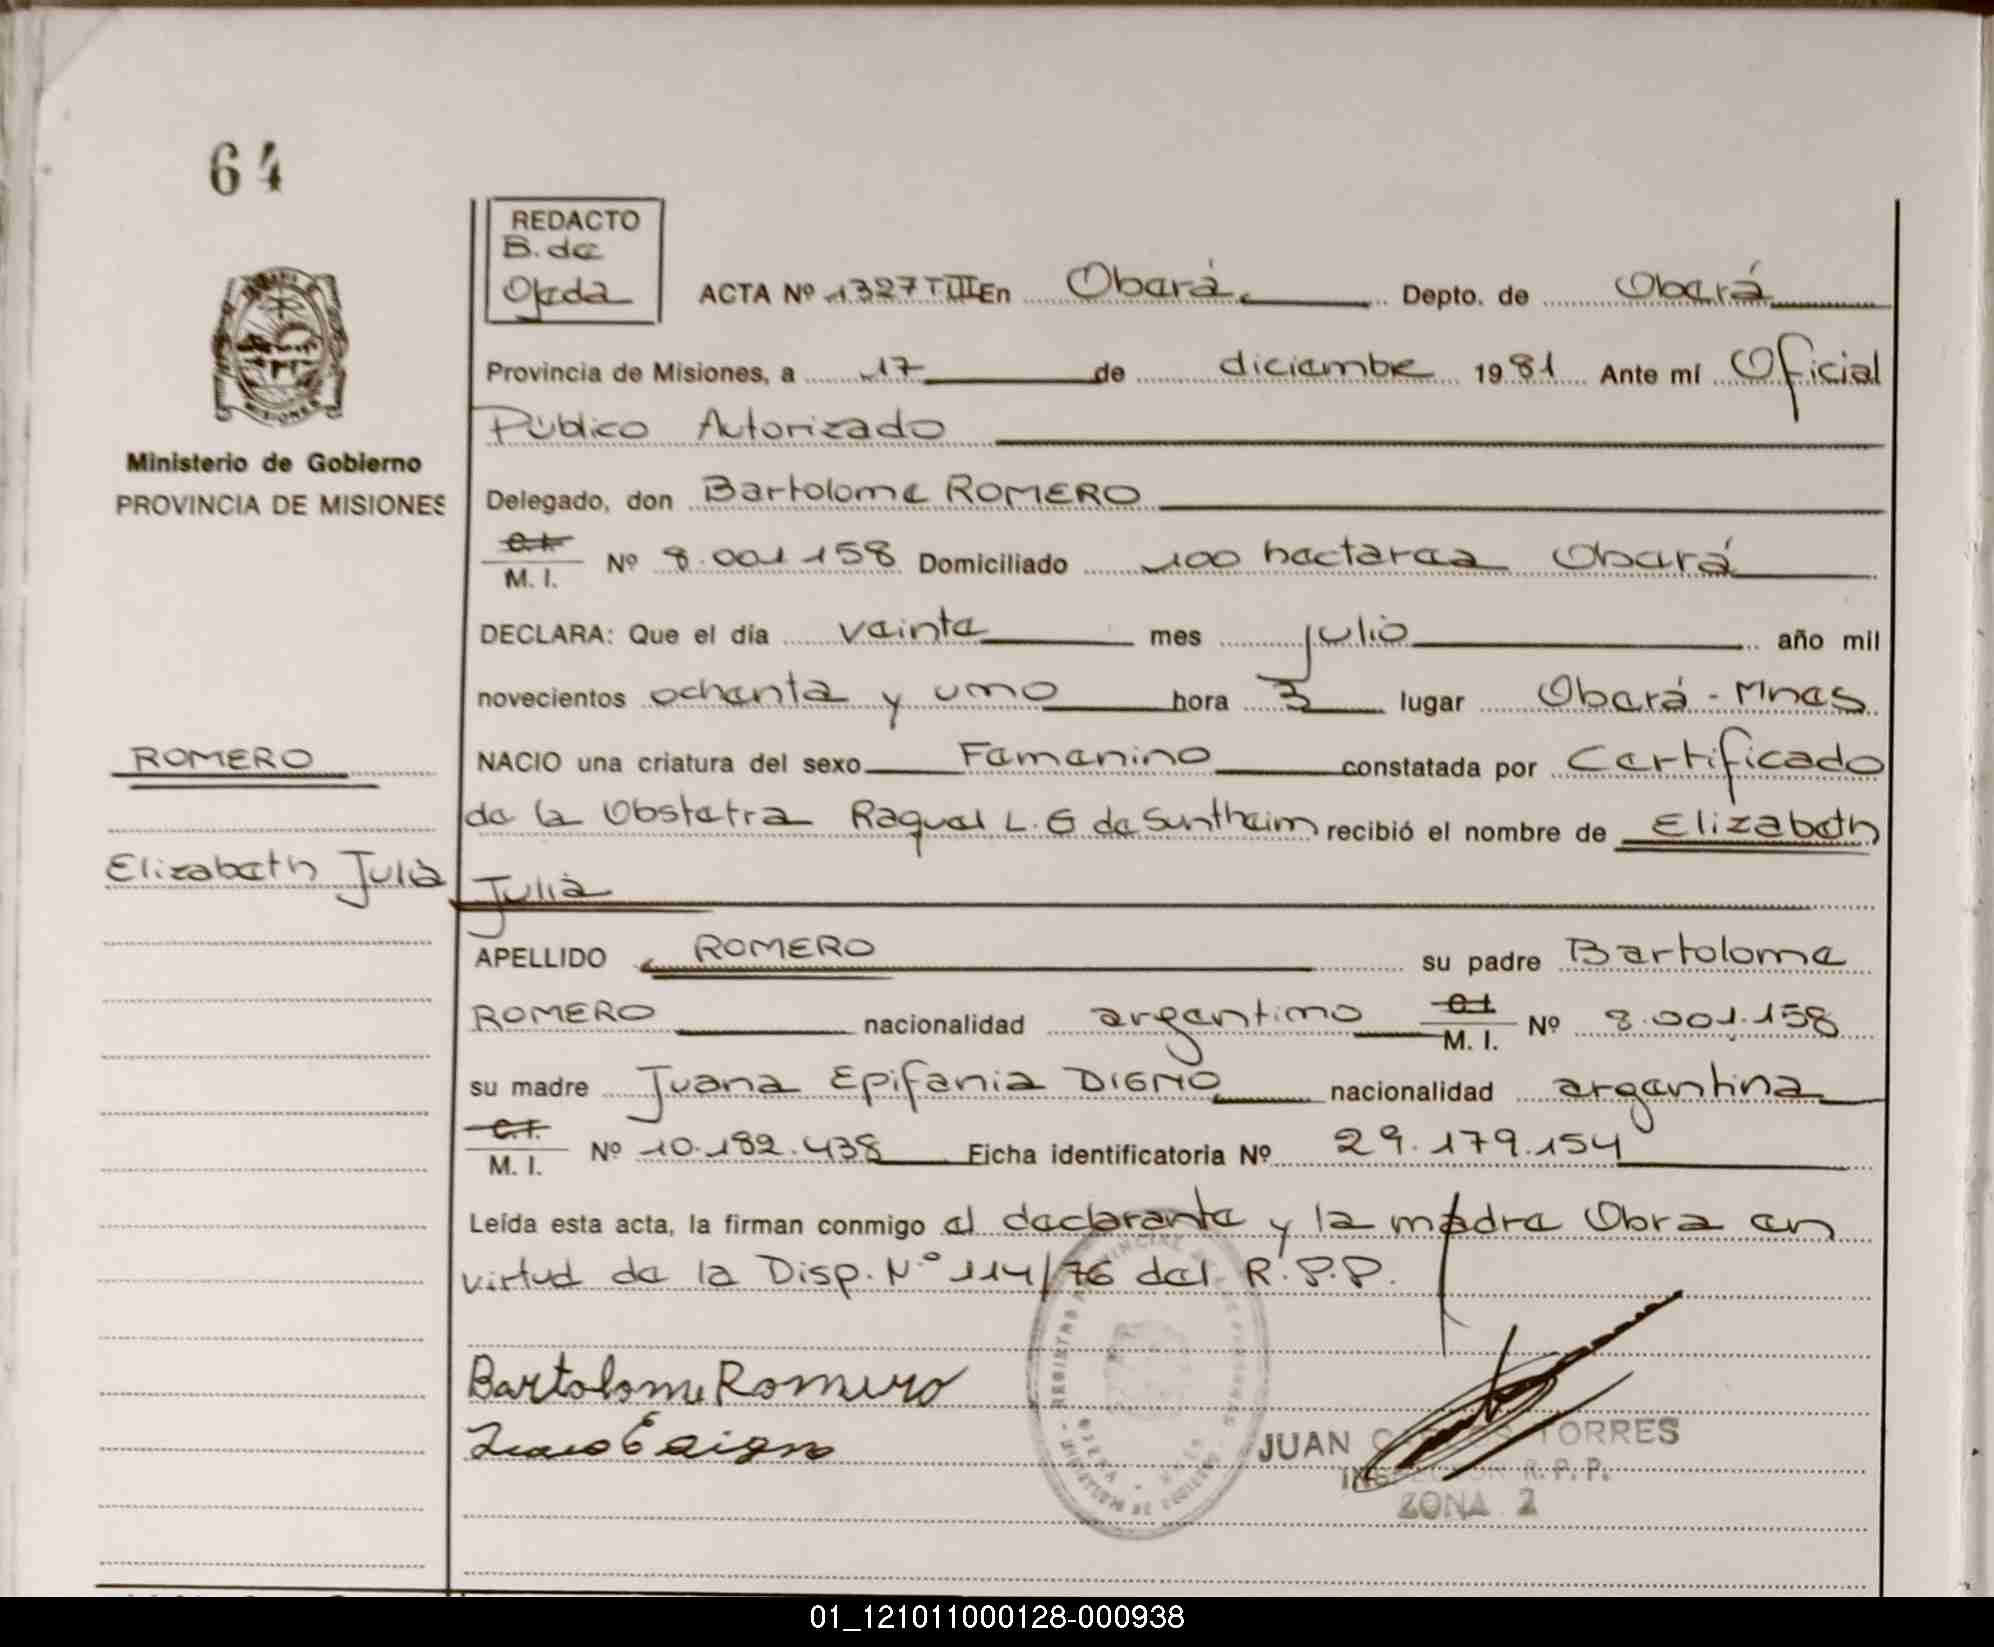 64
REDACTO
B. de
Ojeda
ACTA Nº 1327 T III En Oberá Depto. de Oberá
Provincia de Misiones, a 17 de diciembre 1981 Ante mí Oficial
Público Autorizado
Ministerio de Gobierno
PROVINCIA DE MISIONES
Delegado, don Bartolome ROMERO
C.I.
M. I. Nº 8.001.158 Domiciliado 100 hectareas Oberá
DECLARA: Que el día veinte mes julio año mil
novecientos ochenta y uno hora 3 lugar Oberá - Mnes
ROMERO
NACIO una criatura del sexo Femenino constatada por Certificado
de la Obstetra Raquel L. G de Suntheim recibió el nombre de Elizabeth
Elizabeth Julia
Julia
APELLIDO ROMERO su padre Bartolome
ROMERO nacionalidad argentino C.I. M. I. Nº 8.001.158
su madre Juana Epifania DIGNO nacionalidad argentina
C.I.
M. I. Nº 10.182.438 Ficha identificatoria Nº 29.179.154
Leída esta acta, la firman conmigo el declarante y la madre Obra en
virtud de la Disp. N° 114/76 del R.P.P.
Bartolome Romero
JUAN CARLOS TORRES
INSPECTOR R.P.P.
ZONA 2
01_121011000128-000938